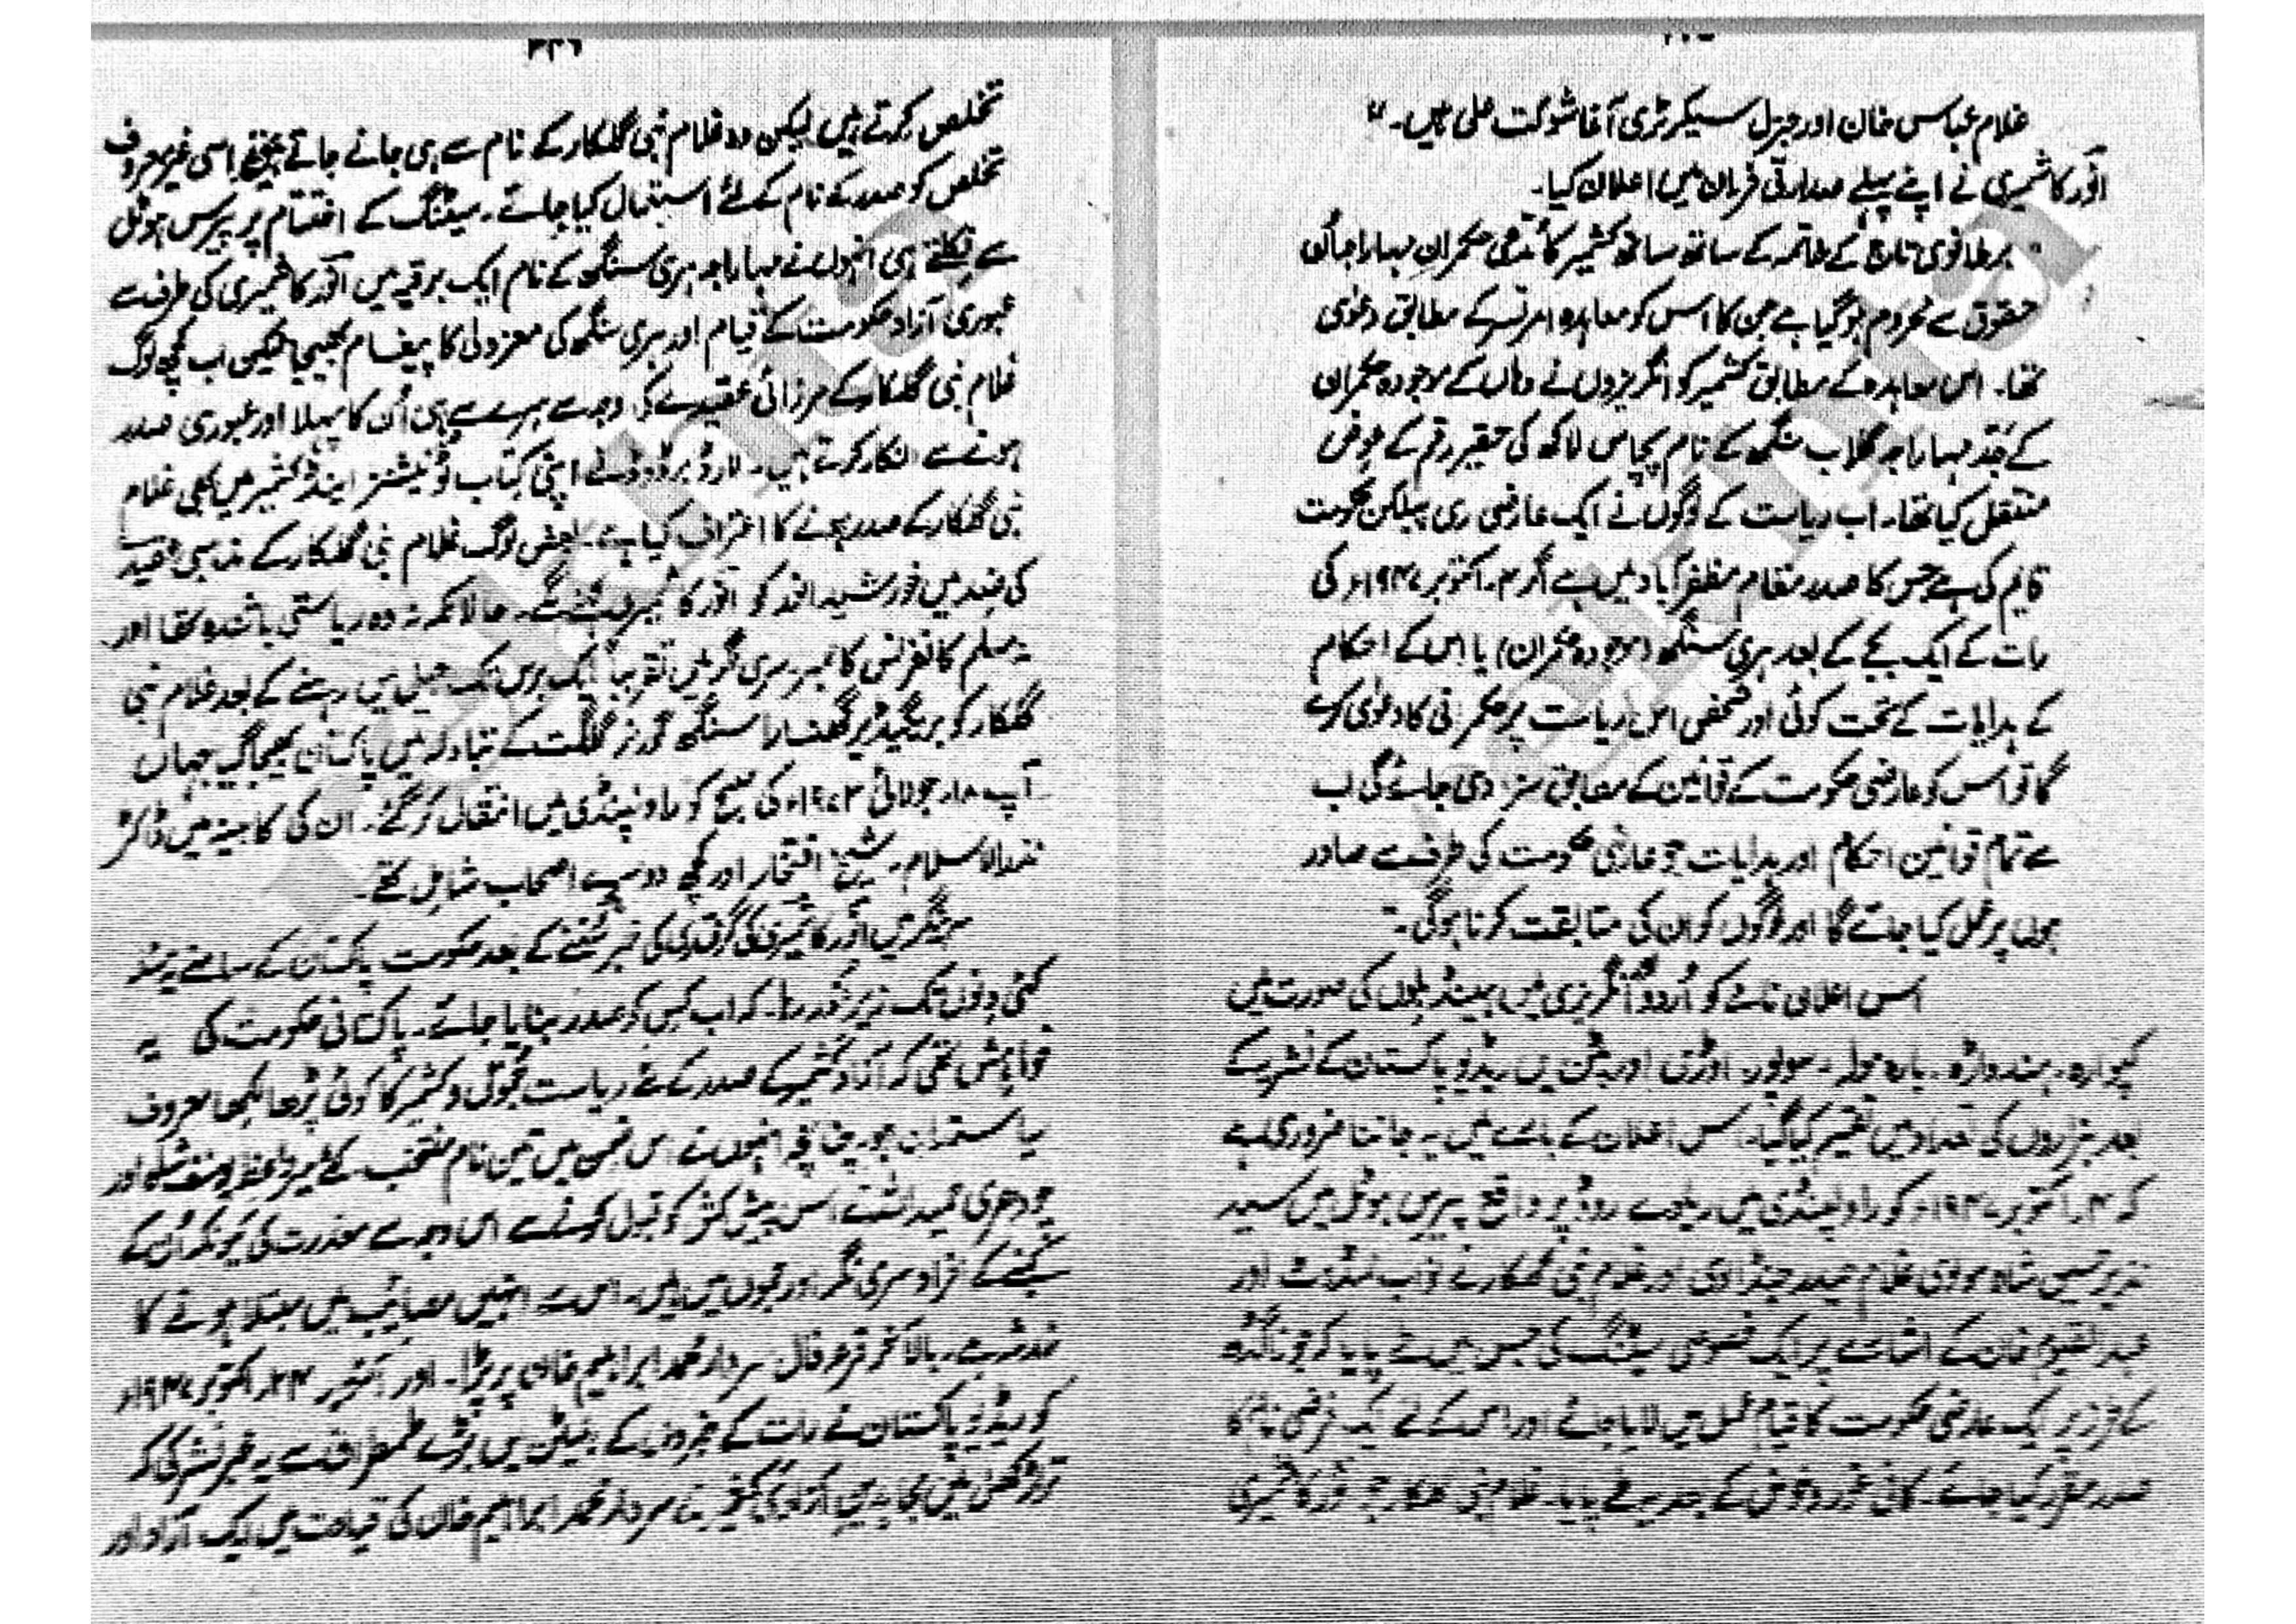 غلام عباس خان اور جنرل سیکرٹری آغا شوکت علی ہیں۔"
انور کاشمیری نے اپنے پہلے صدارتی فرمان میں اعلان کیا۔
"برطانوی تاج کے خاتمہ کے ساتھ ساتھ کشمیر کا حکمران مہاراجا اُن
حقوق سے محروم ہو گیا ہے جن کا اس کو معاہدہ امرتسر کے مطابق دعویٰ
تھا۔ اس معاہدہ کے مطابق کشمیر کو انگریزوں نے وہاں کے موجودہ حکمران
کے جد مہاراجہ گلاب سنگھ کے نام پچاس لاکھ کی حقیر رقم کے عوض
منتقل کیا تھا۔ اب ریاست کے لوگوں نے ایک عارضی ری پبلکن حکومت
قایم کی ہے جس کا صدر مقام مظفر آباد میں ہے اگر ۴۔ اکتوبر ۱۹۴۷ء کی
رات کے ایک بجے کے بعد ہری سنگھ (موجودہ حکمران) یا اس کے احکام
کے ہدایات کے تحت کوئی اور شخص اس ریاست پر حکمرانی کا دعویٰ کرے
گا تو اس کو عارضی حکومت کے قوانین کے مطابق سزا دی جائے گی اب
سے تمام قوانین احکام اور ہدایات جو عارضی حکومت کی طرف سے صادر
ہوں پر عمل کیا جائے گا اور لوگوں کو ان کی متابقت کرنا ہوگی۔"
اس اعلان نامے کو اُردو انگریزی میں ہینڈ بلوں کی صورت میں
کپوارہ۔ ہندواڑہ۔ بارہ مولہ۔ سوپور۔ اوڑی اور پٹن میں ریڈیو پاکستان کے نشریے کے
بعد ہزاروں کی تعداد میں تقسیم کیا گیا۔ اس اعلان کے بارے میں یہ جاننا ضروری ہے
کہ ۴۔ اکتوبر ۱۹۴۷ء کو راولپنڈی میں ریلوے روڈ پر واقع پیرس ہوٹل میں سید
نذیر حسین شاہ مولوی غلام حیدر جنڈالوی اور غلام نبی گلکار نے نواب ممدوٹ اور
عبدالقیوم خان کے اشارے پر ایک خصوصی میٹنگ کی جس میں طے پایا کہ جوناگڑھ
کے طرز پر ایک عارضی حکومت کا قیام عمل میں لایا جائے اور اس کے لئے ایک فرضی نام کا
صدر مقرر کیا جائے۔ کافی غور و خوض کے بعد یہ طے پایا۔ غلام نبی گلکار جو انور کاشمیری
۳۲۶
تخلص کرتے ہیں لیکن وہ غلام نبی گلکار کے نام سے ہی جانے جاتے تھے اسی غیر معروف
تخلص کو صدر کے نام کے لئے استعمال کیا جائے۔ میٹنگ کے اختتام پر پیرس ہوٹل
سے نکلتے ہی انہوں نے مہاراجہ ہری سنگھ کے نام ایک برقیہ میں انور کاشمیری کی طرف سے
عبوری آزاد حکومت کے قیام اور ہری سنگھ کی معزولی کا پیغام بھیجا لیکن اب کچھ لوگ
غلام نبی گلکار کے مرزائی عقیدے کی وجہ سے سرے سے ہی اُن کا پہلا اور عبوری صدر
ہونے سے انکار کرتے ہیں۔ لارڈ برڈوڈ نے اپنی کتاب ٹو نیشنز اینڈ کشمیر میں بھی غلام
نبی گلکار کے صدر ہونے کا اعتراف کیا ہے۔ بعض لوگ غلام نبی گلکار کے مذہبی عقیدے
کی ضد میں خورشید انور کو انور کاشمیری بتاتے۔ حالانکہ نہ وہ ریاستی باشندہ تھا اور
نہ مسلم کانفرنس کا ممبر۔ سری نگر میں تقریباً ایک برس تک جیل میں رہنے کے بعد غلام نبی
گلکار کو بریگیڈیر گھنسارا سنگھ گورنر گلگت کے تبادلہ میں پاکستان بھیجا گیا جہاں
آپ ۱۸ جولائی ۱۹۷۳ء کی صبح کو راولپنڈی میں انتقال کر گئے۔ ان کی کابینہ میں ڈاکٹر
نذرالاسلام۔ شیخ افتخار اور کچھ دوسرے اصحاب شامل تھے۔
سرینگر میں انور کاشمیری کی گرفتاری کی خبر سُننے کے بعد حکومت پاکستان کے سامنے یہ مسئلہ
کئی دنوں تک زیر غور رہا۔ کہ اب کس کو صدر بنایا جائے۔ پاکستانی حکومت کی یہ
خواہش تھی کہ آزاد کشمیر کے صدر کے لئے ریاست جموں و کشمیر کا کوئی پڑھا لکھا معروف
سیاستدان ہو۔ چنانچہ انہوں نے اس ضمن میں تین نام منتخب کئے میر واعظ یوسف شاہ اور
چودھری حمید اللہ نے اس پیش کش کو قبول کرنے سے اس وجہ سے معذرت کی کیونکہ اُن کے
کنبے کے افراد سری نگر اور جموں میں ہیں۔ اس سے انہیں مصائب میں مبتلا ہونے کا
خدشہ ہے۔ بالآخر قرعہ فال سردار محمد ابراہیم خان پر پڑا۔ اور آخر ۲۴ اکتوبر ۱۹۴۷ء
کو ریڈیو پاکستان نے رات کے خبروں کے بلیٹن میں بڑے طمطراق سے یہ خبر نشر کی کہ
تراڑکھل میں مجاہدین آزادی کشمیر نے سردار محمد ابراہیم خان کی قیادت میں ایک آزاد اور